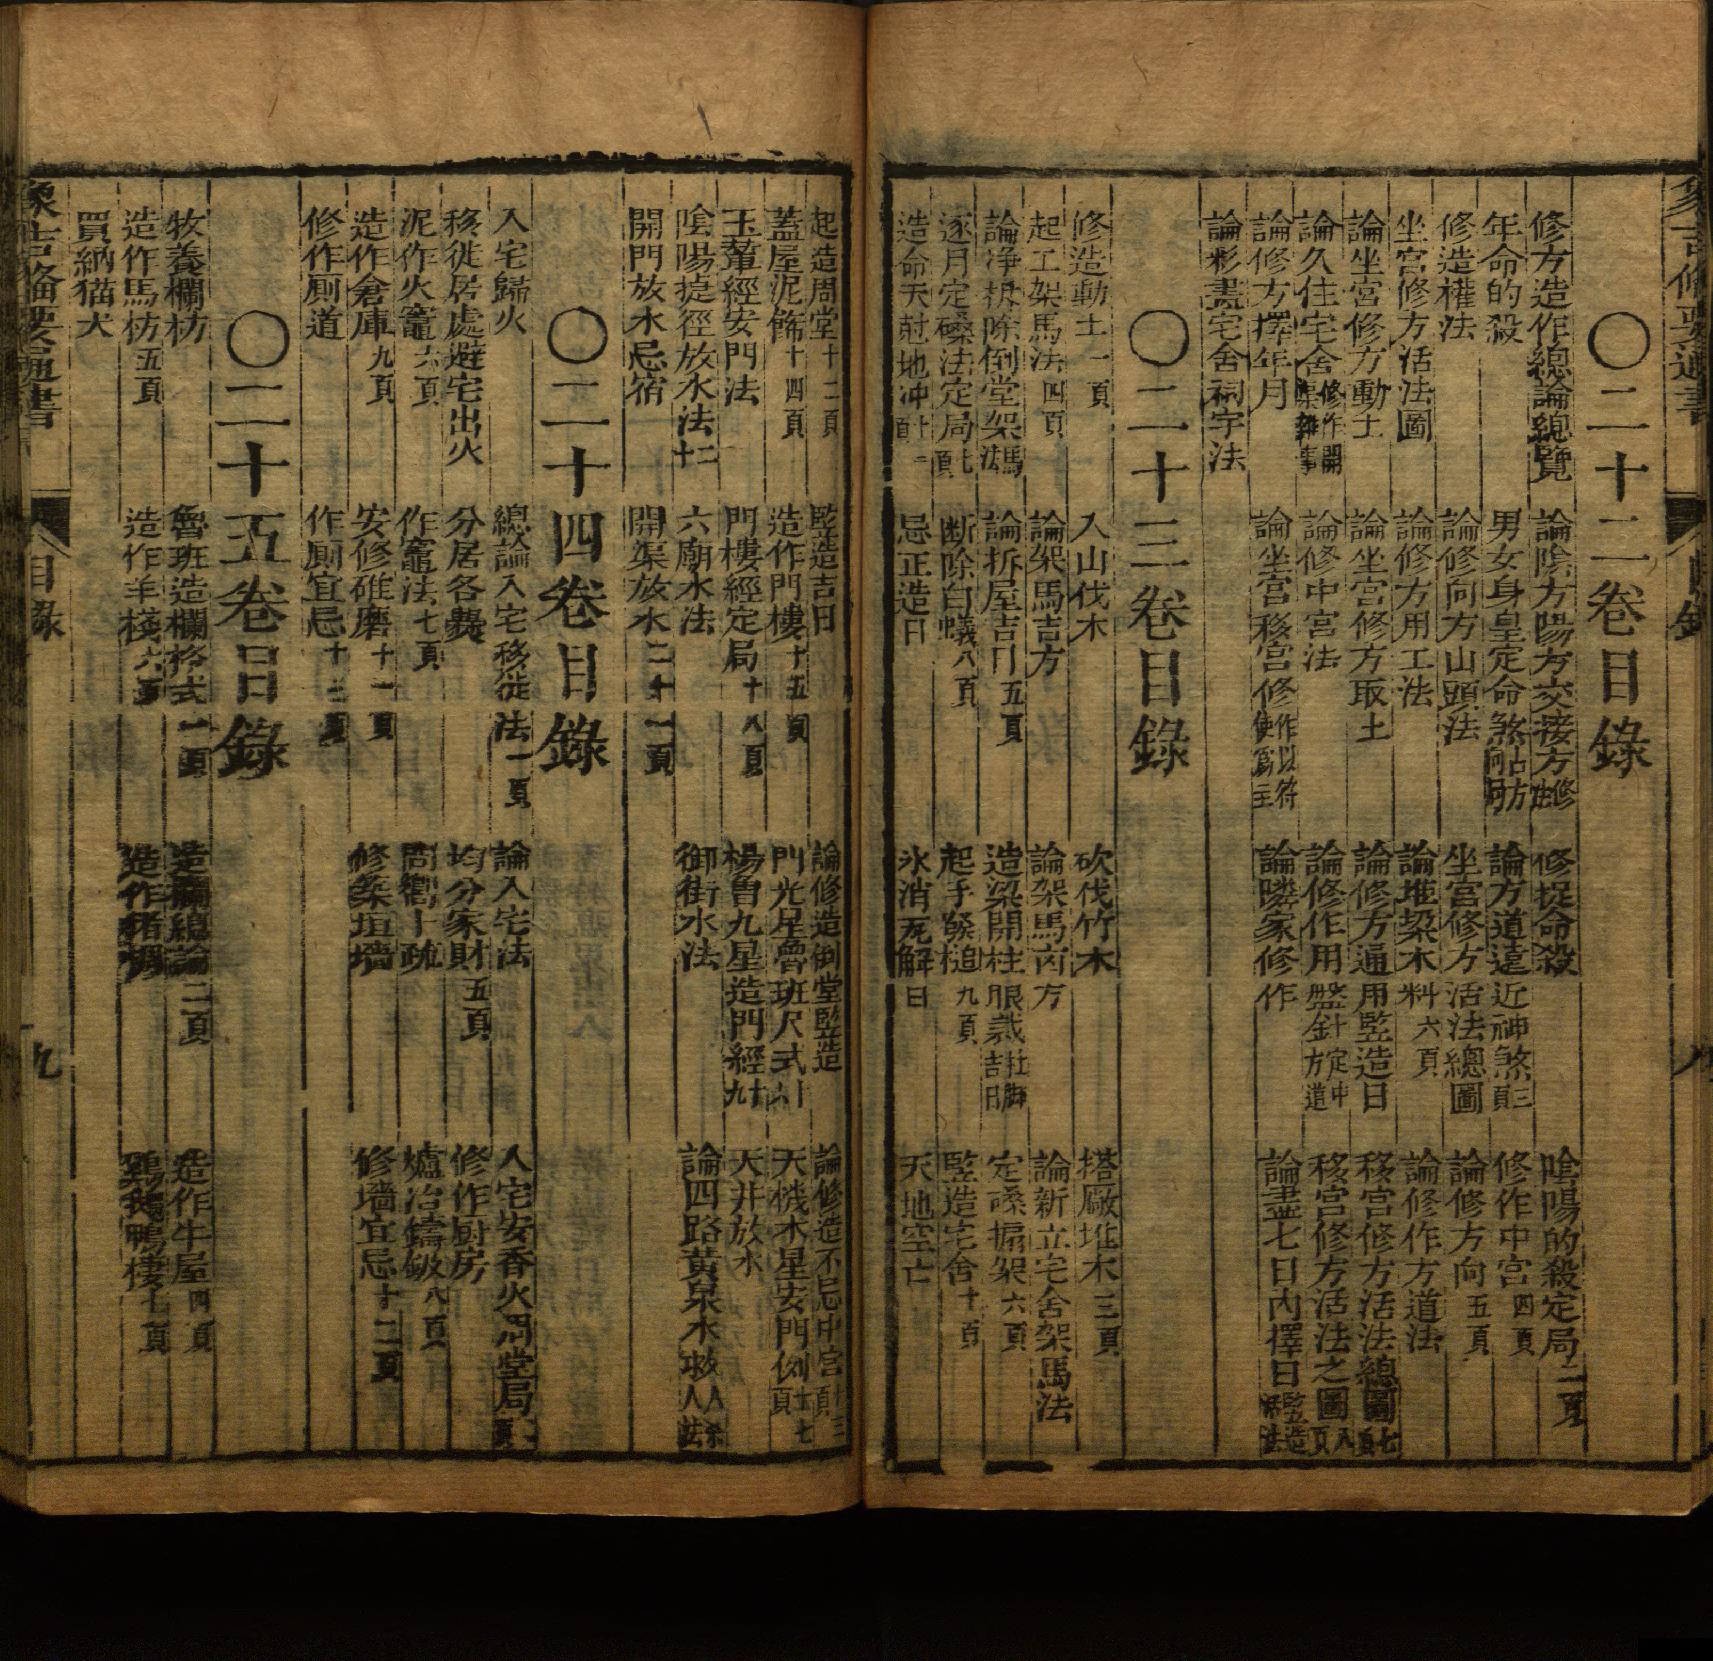 象吉備要通書
目錄
八
○二十二卷目錄
修方造作總論總覽 論陰方陽方交接方 修捉命殺 陰陽的殺定局二頁
年命的殺 男女身皇定命煞 論方道遠近神煞三頁 修作中宮四頁
修造權法 論修向方山頭法 坐宮修方活法總圖 論修方向五頁
坐宮修方活法圖 論修方用工法 論堆梁木料六頁 論修作方道法
論坐宮修方動土 論坐宮修方取土 論修方通用監造日 移宮修方活法總圖七頁
論久住宅舍修作開渠雜事 論修中宮法 論修作用盤針定中方道 移宮修方活法之圖八頁
論修方擇年月 論坐宮移宮修作以符使爲主 論隣家修作 論盡七日內擇日監造活法
論彩畫宅舍祠宇法
○二十三卷目錄
修造動土一頁 入山伐木 砍伐竹木 搭廠堆木三頁
起工架馬法四頁 論架馬吉方 論架馬凶方 論新立宅舍架馬法
論凈拆除倒堂架馬法 論拆屋吉日五頁 造梁開柱眼裁柱脚吉日 定磉搧架六頁
逐月定磉法定局七頁 断除白蟻八頁 起手發槌九頁 監造宅舍十頁
造命天尅地冲十一頁 忌正造日 氷消瓦解日 天地空亡
起造周堂十二頁 監造吉日 論修造倒堂監造 論修造不忌中宮十三頁
蓋屋泥餙十四頁 造作門樓十五頁 門光星魯班尺式十六 天機木星安門例十七頁
玉輦經安門法 門樓經定局十八頁 楊曾九星造門經十九 天井放水
陰陽捷徑放水法二十 六廟水法 御街水法 論四路黃泉水救人殺人法
開門放水忌宿 開渠放水二十一頁
○二十四卷目錄
入宅歸火 總論入宅移徙法一頁 論入宅法 入宅安香火周堂局
移徙居處避宅出火 分居各㸑 均分家財五頁 修作厨房
泥作火竈六頁 作竈法七頁 爐冶鑄破八頁
造作倉庫九頁 安修碓磨十一頁 修築垣墻 修墻宜忌十二頁
修作厠道 作厠宜忌十三頁
○二十五卷目錄
牧養欄枋 魯班造欄格式一頁 造欄總論二頁 造作牛屋四頁
造作馬枋五頁 造作羊棧六頁 造作猪椆 鷄鵝鴨棲七頁
買納猫犬
象吉備要通書
目錄
九